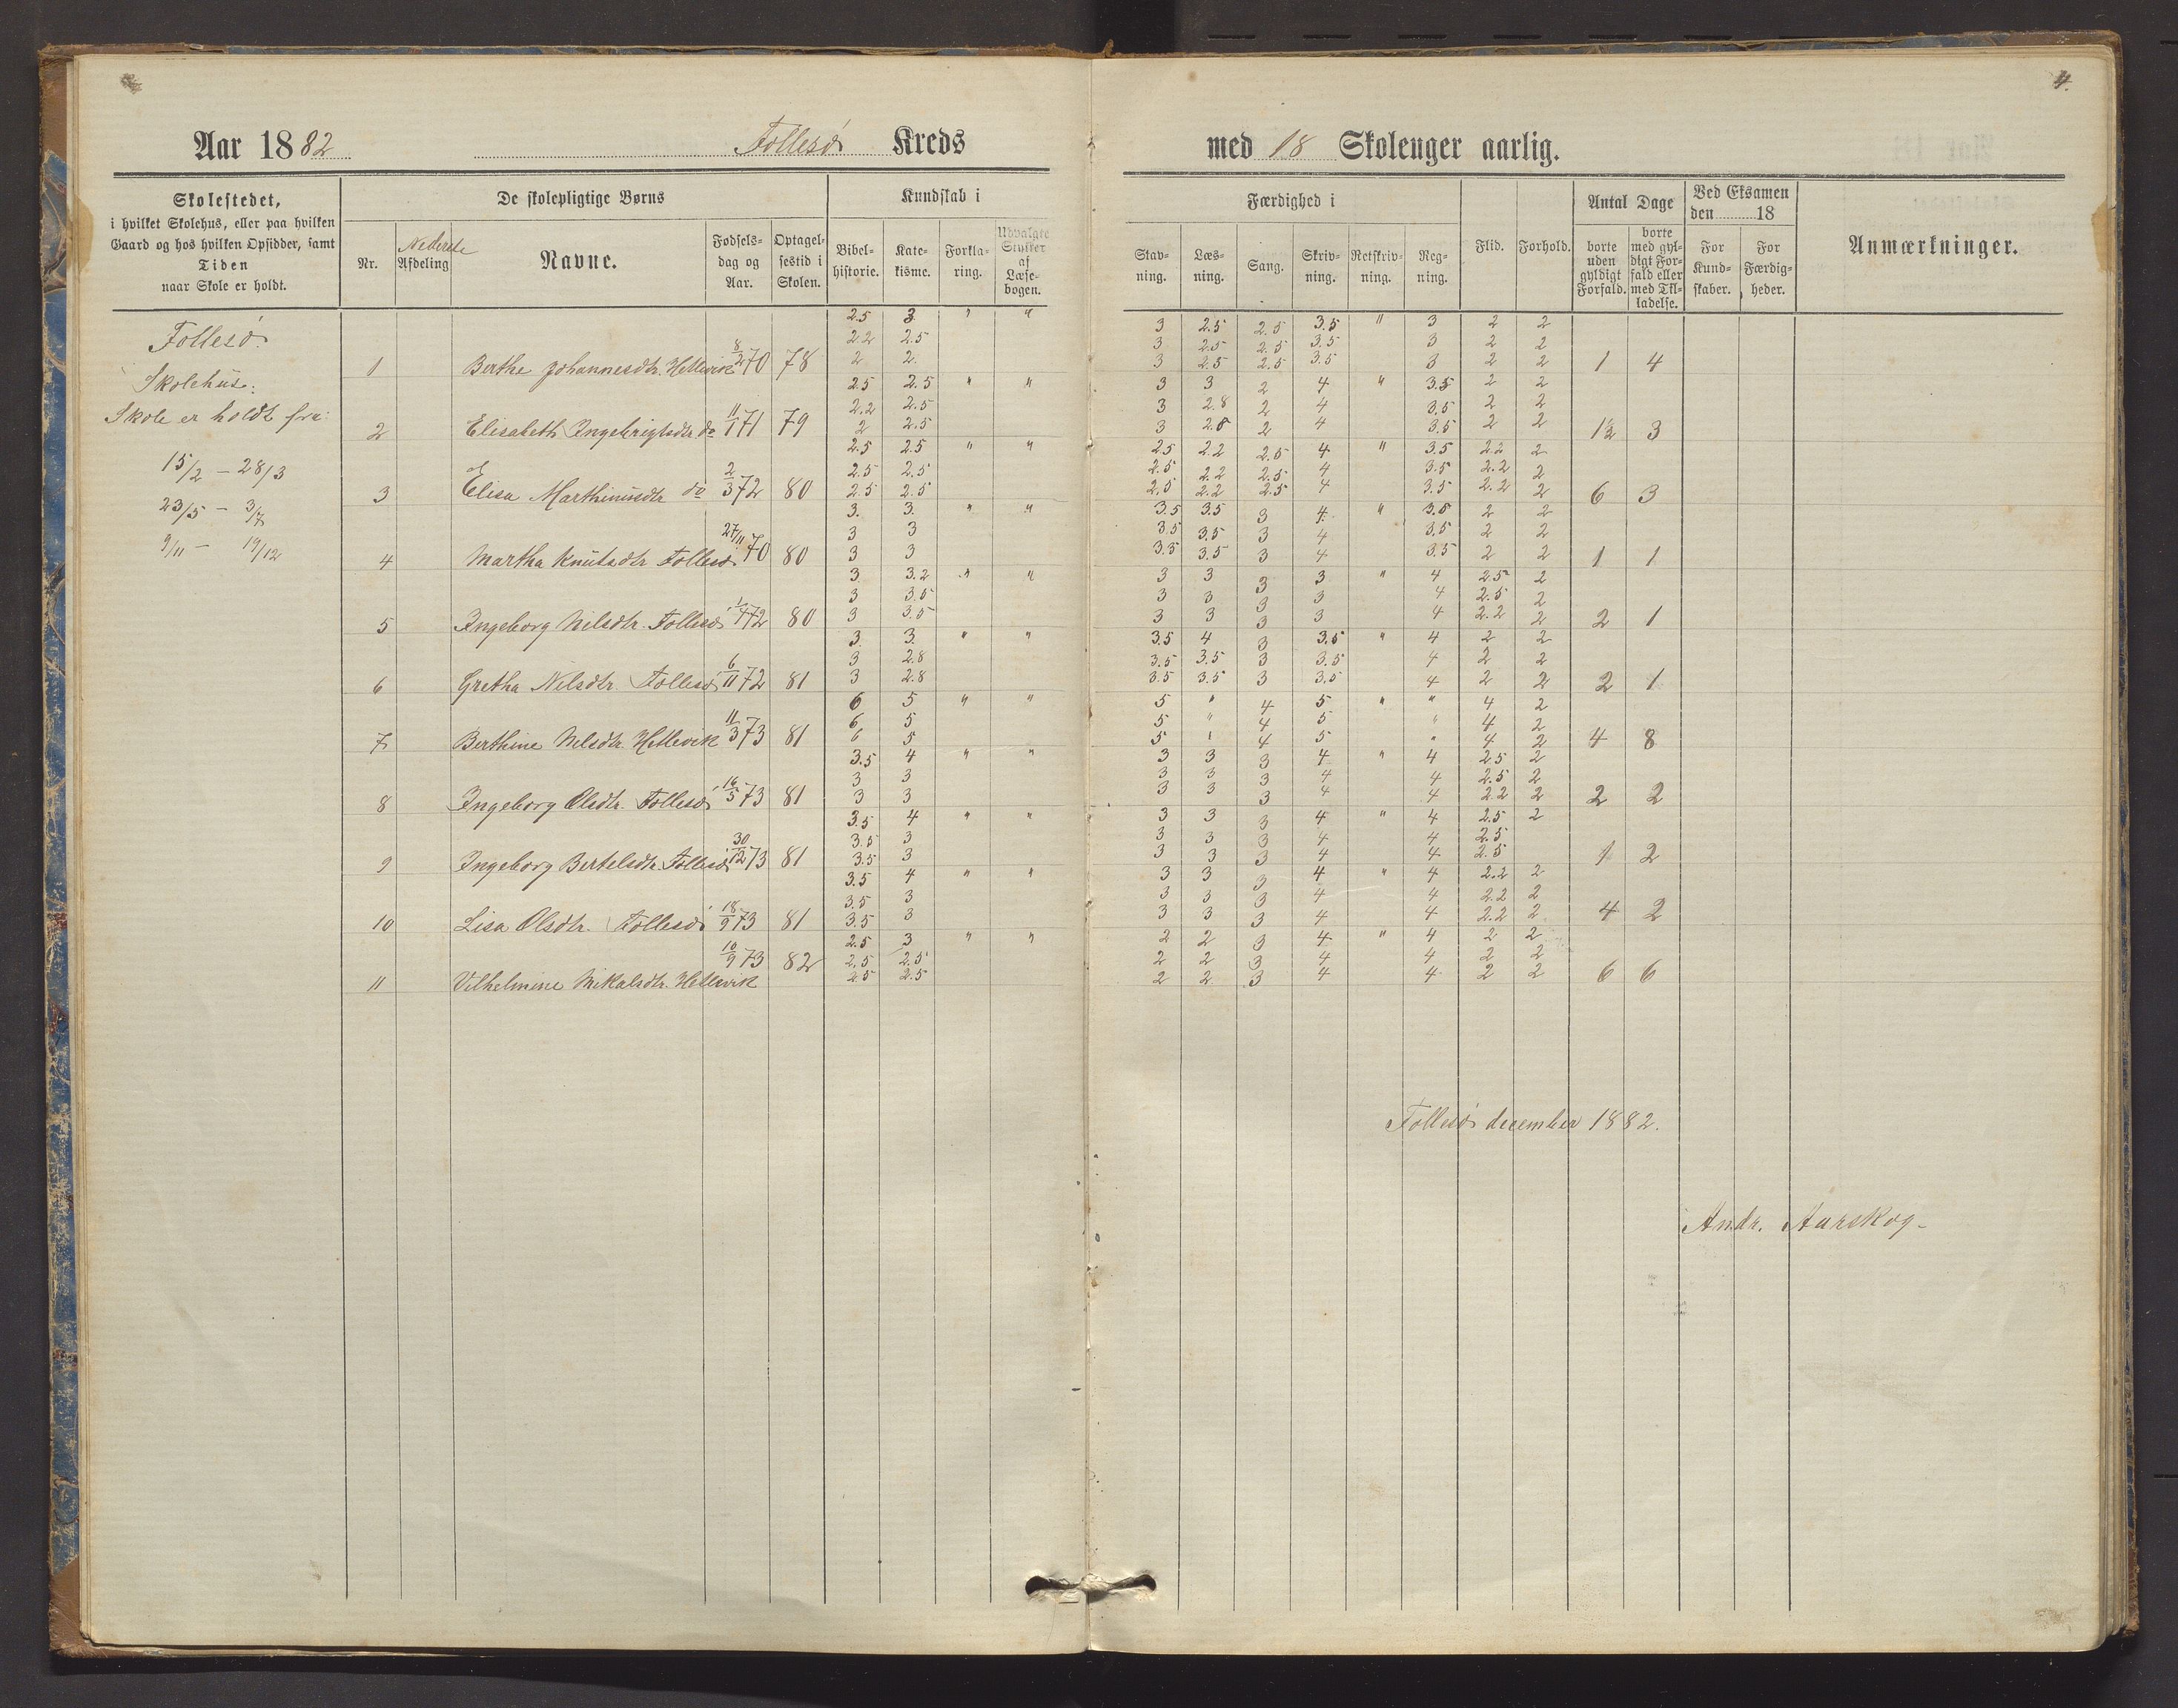 4.
Aar 1882 Follesø Kreds med 18 Skoleuger aarlig.
Skolestedet,
i hvilket Skolehus, eller paa hvilken
Gaard og hos hvilken Opsidder, samt
Tiden
naar Skole er holdt.
De skolepligtige Børns
Nr.
Nederste
Afdeling
Navne.
Fødsels-
dag og
Aar.
Optagel-
sestid i
Skolen.
Kundskab i
Bibel-
historie.
Kate-
kisme.
Forkla-
ring.
Udvalgte
Stykker
af
Læse-
bogen.
Færdighed i
Stav-
ning.
Læs-
ning.
Sang.
Skriv-
ning.
Retskriv-
ning.
Reg-
ning.
Flid.
Forhold.
Antal Dage
borte
uden
gyldigt
Forfald.
borte
med gyl-
digt For-
fald eller
med Til-
ladelse.
Ved Eksamen
den 18
For
Kund-
skaber.
For
Færdig-
heder.
Anmærkninger.
Follesø.
Skolehus.
Skole er holdt fra:
15/2 - 28/3
23/5 - 3/7
9/11 - 19/12
2.5 3 " " 3 2.5 2.5 3.5 " 3 2 2
2.2 2.5 3 2.5 2.5 3.5 3 2 2
1 Berthe Johannesdtr. Hetlevik 8/2 70 78 2 2 3 2.5 2.5 3.5 3 2 2 1 4
2.5 2.5 " " 3 3 2 4 " 3.5 2 2
2.2 2.5 3 2.8 2 4 3.5 2 2
2 Elisabeth Ingebrigtsdtr do 11/1 71 79 2 2.5 3 2.8 2 4 3.5 2 2 12 3
2.5 2.5 " " 2.5 2.2 2.5 4 " 3.5 2.2 2
2.5 2.5 2.5 2.2 2.5 4 3.5 2.2 2
3 Elisa Marthinusdtr do 2/3 72 80 2.5 2.5 2.5 2.2 2.5 4 3.5 2.2 2 6 3
3. 3. " " 3.5 3.5 3 4. " 3.5 2 2
3 3 3.5 3.5 3 4 3.5 2 2
4 Martha Knutsdtr Follesø 27/11 70 80 3 3 3.5 3.5 3 4 3.5 2 2 1 1
3 3.2 " " 3 3 3 3 " 4 2.5 2
3 3.5 3 3 3 3 4 2.5 2
5 Ingeborg Nilsdtr. Follesø 1/4 72 80 3 3.5 3 3 3 3 4 2.2 2 2 1
3. 3. " " 3.5 4 3 3.5 " 4 2 2
3 2.8 3.5 3.5 3 3.5 4 2 2
6 Gretha Nilsdtr. Follesø 6/11 72 81 3 2.8 3.5 3.5 3 3.5 4 2 2 2 1
6 5 " " 5 " 4 5 " " 4 2
6 5 5 " 4 5 " 4 2
7 Berthine Nilsdtr. Hetlevik 11/3 73 81 6 5 5 " 4 5 " 4 2 4 8
3.5 4 " " 3 3 3 4 " 4 2.5 2
3 3 3 3 3 4 4 2.5 2
8 Ingeborg Olsdtr. Follesø 16/5 73 81 3 3 3 3 3 4 4 2.2 2 2 2
3.5 4 " " 3 3 3 4 " 4 2.5 2
3.5 3 3 3 3 4 4 2.5
9 Ingeborg Bertelsdtr. Follesø 30/12 73 81 3.5 3 3 3 3 4 4 2.5 1 2
3.5 4 " " 3 3 3 4 " 4 2.2 2
3.5 3 3 3 3 4 4 2.2 2
10 Lisa Olsdtr. Follesø 18/9 73 81 3.5 3 3 3 3 4 4 2.2 2 4 2
2.5 3 " " 2 2 3 4 " 4 2 2
2.5 2.5 2 2 3 4 4 2 2
11 Vilhelmine Mikalsdtr. Hetlevik 10/9 73 82 2.5 2.5 2 2 3 4 4 2 2 6 6
Follesø december 1882.
Andr. Aarskog.